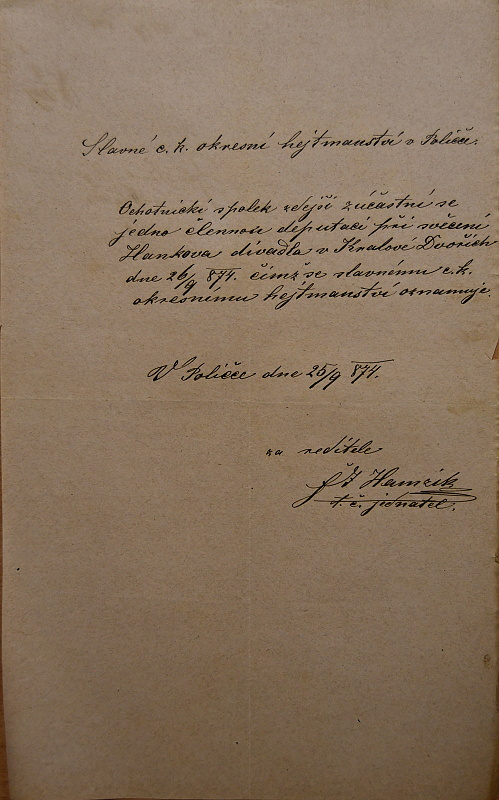 Slavné c. k. okresní hejtmanství v Poličce.
Ochotnický spolek zdejší zúčastní se
jedno člennou deputací při svěcení
Hankova divadla v Kralové Dvořích
dne 26/9 874. čímž se slavnému c. k.
okresnímu hejtmanství oznamuje.
V Poličce dne 25/9 874.
za ředitele
Hamzík
t. č. jednatel.